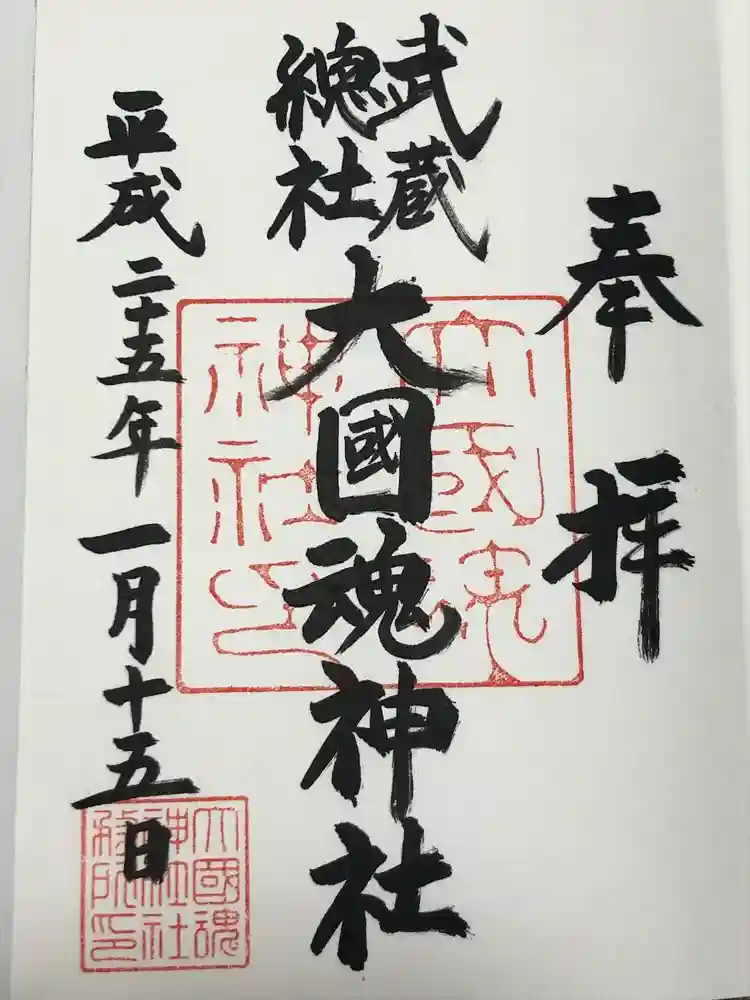 奉拝
武蔵
總社
大國魂神社
平成二十五年一月十五日
大國魂
神社印
大國魂
神社社
務所印